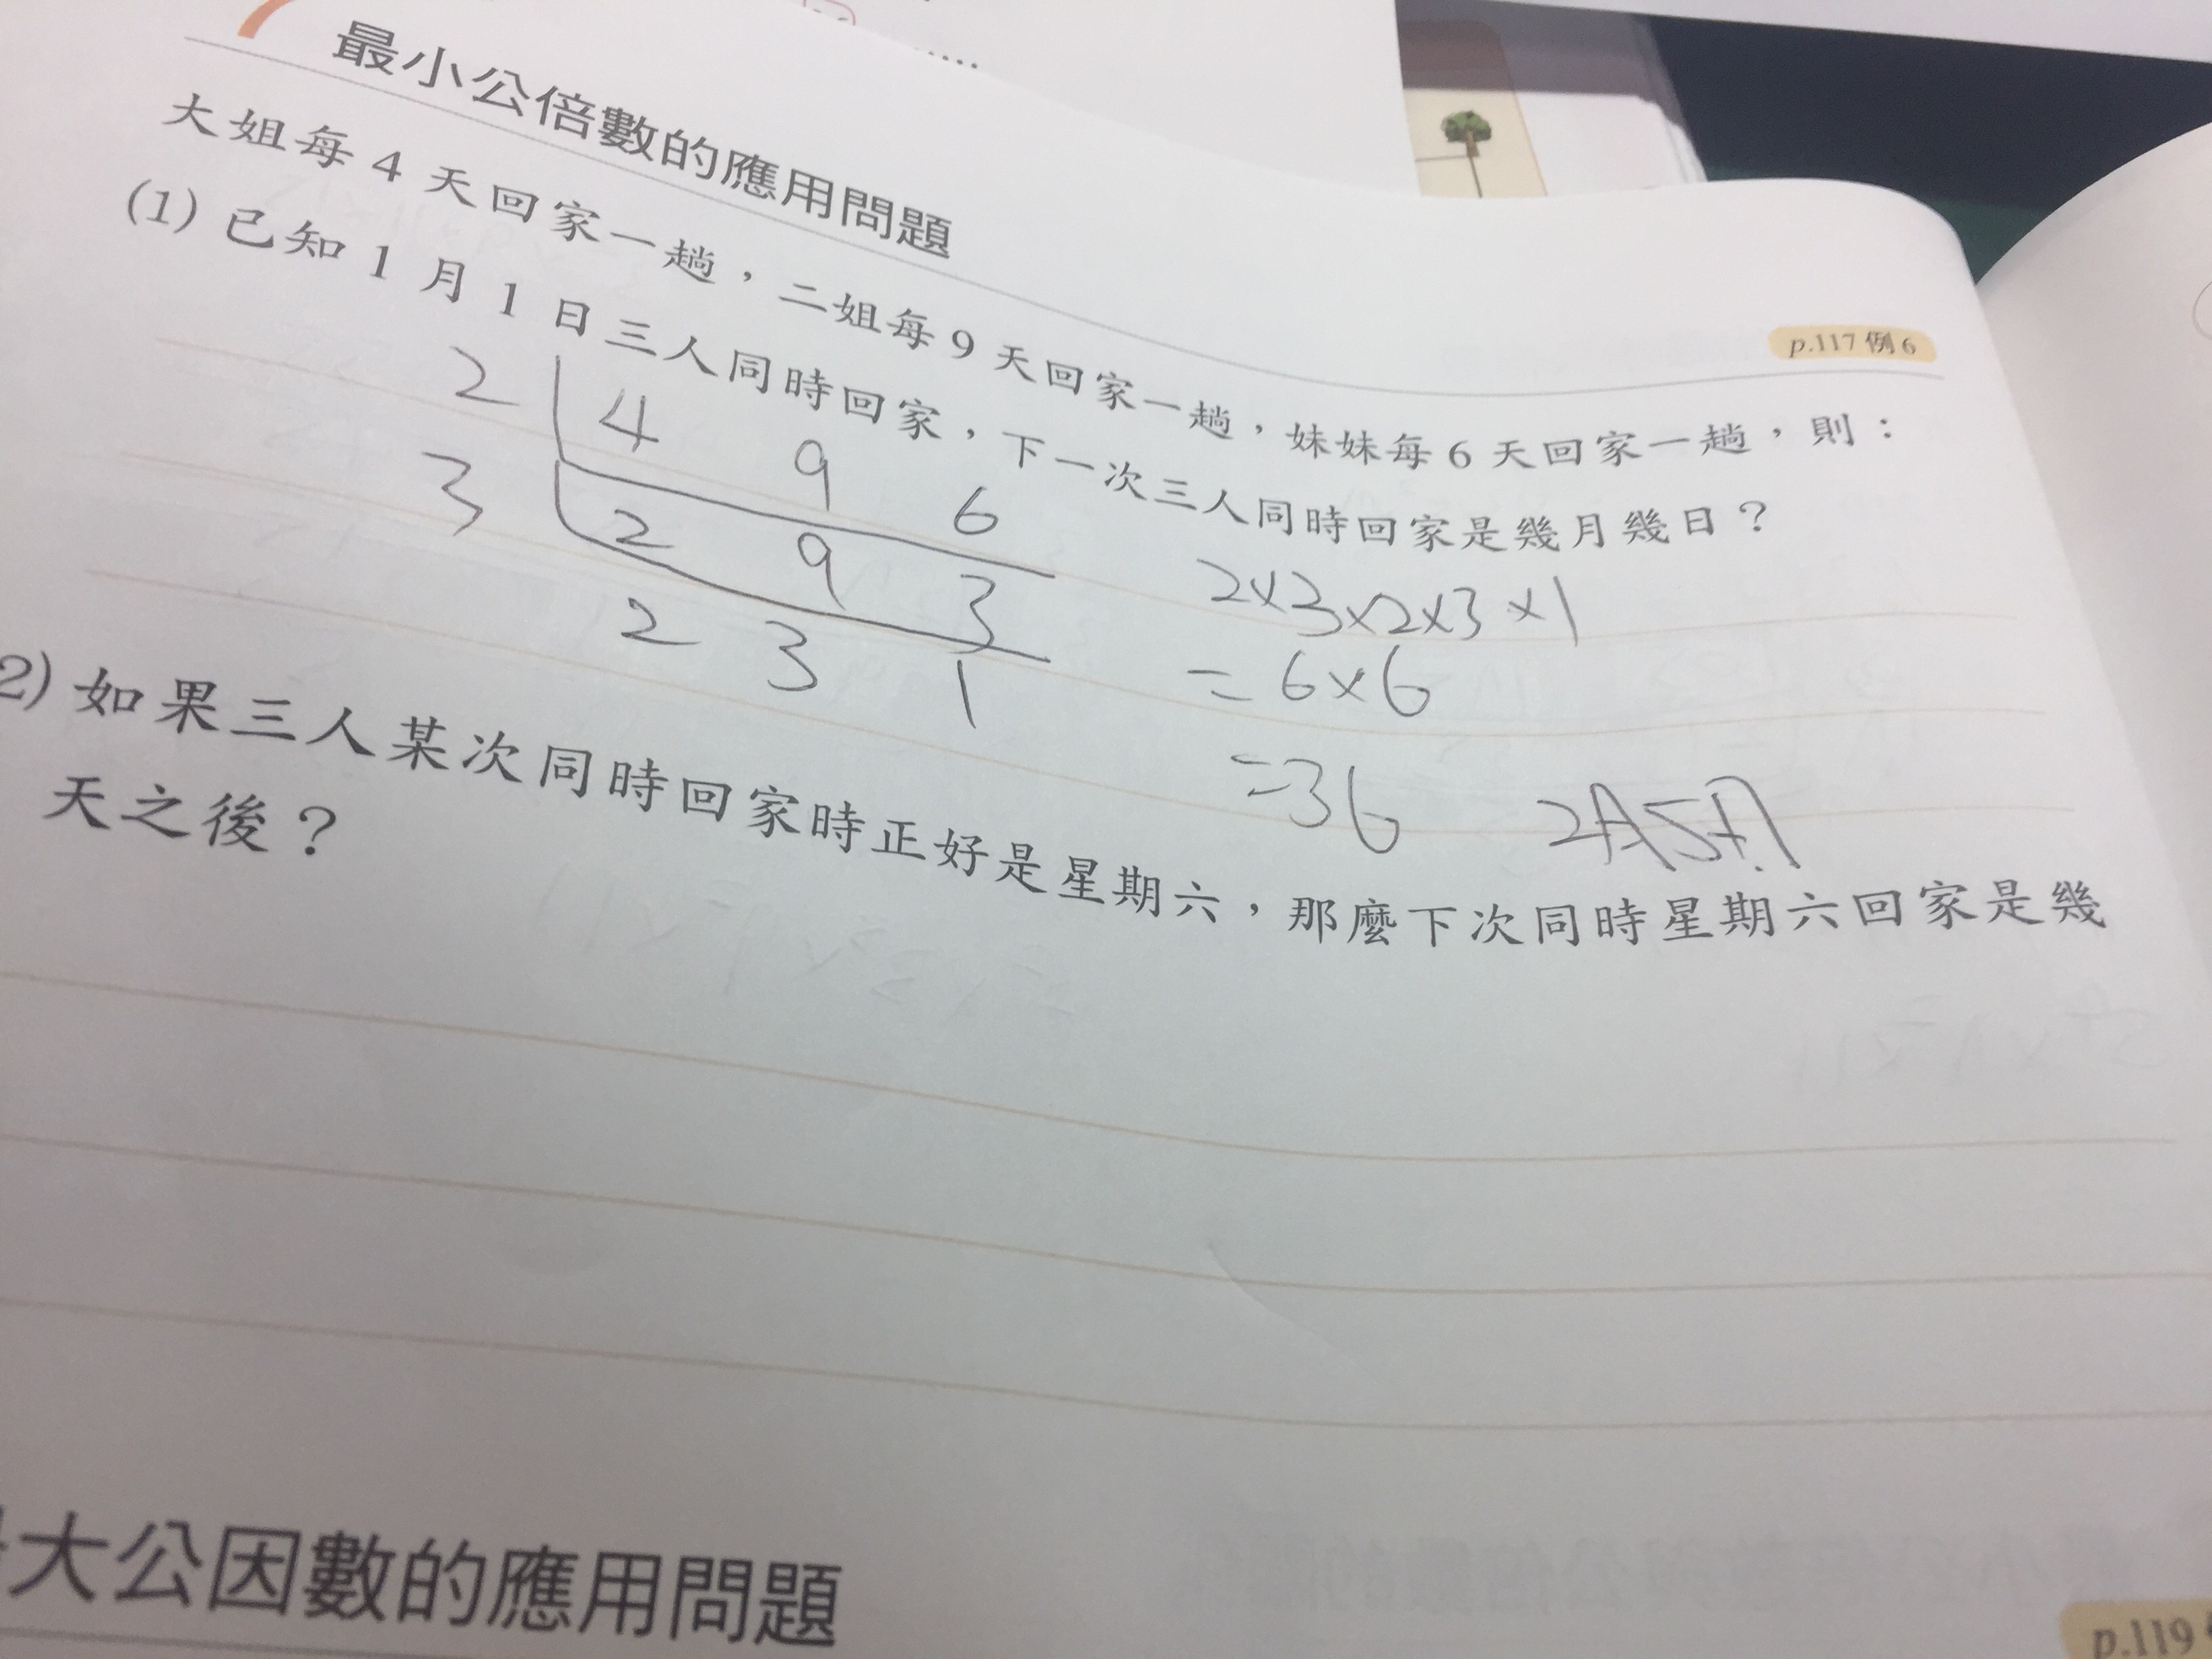 最小公倍數的應用問題
p.117 例 6
大姐每 4 天回家一趟，二姐每 9 天回家一趟，妹妹每 6 天回家一趟，則：
(1) 已知 1 月 1 日三人同時回家，下一次三人同時回家是幾月幾日？
2 4 9 6
3 2 9 3
2 3 1
2×3×2×3×1
=6×6
=36 2月5日
2) 如果三人某次同時回家時正好是星期六，那麼下次同時星期六回家是幾
天之後？
大公因數的應用問題
p.119